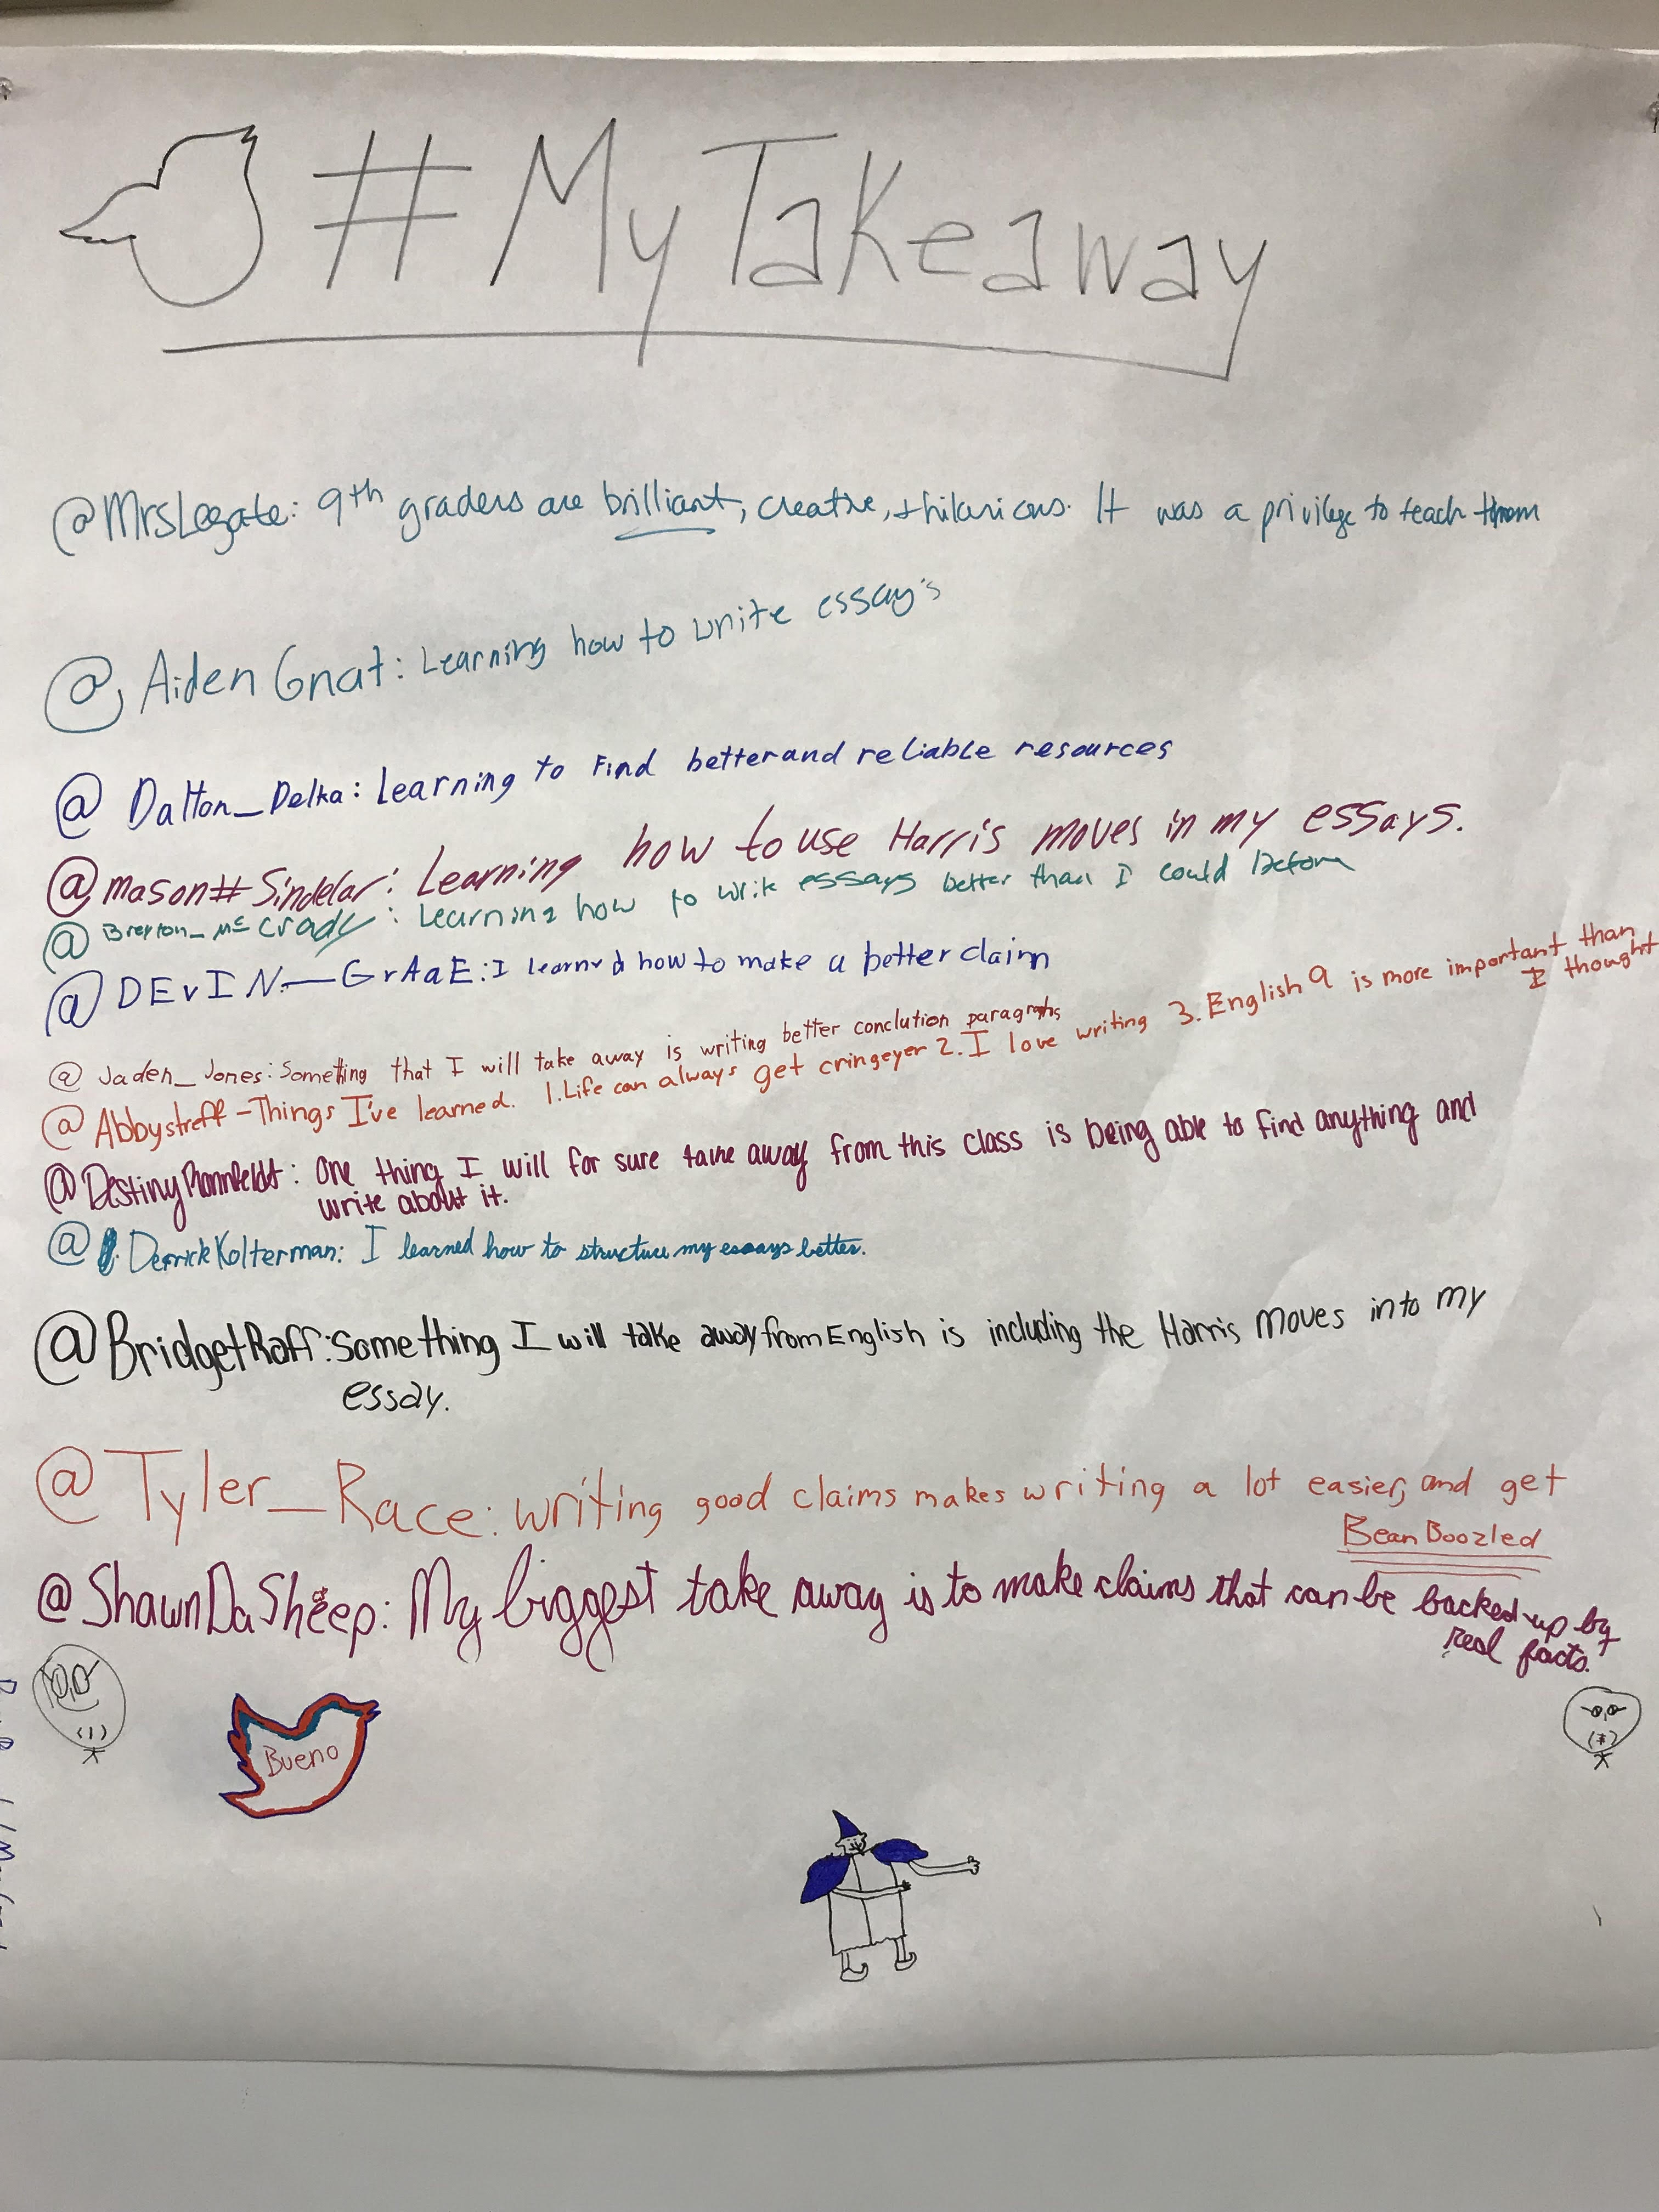 #MyTakeaway
@MrsLegate: 9th graders are brilliant, creative, + hilarious. It was a privilege to teach them
@ Aiden Gnat: Learning how to write essay's
@ Dalton_Delka: Learning to Find better and reliable resources
@mason#Sindelar: Learning how to use Harris moves in my essays.
@ Breyton_McCrady: Learning how to write essays better than I could before
@ DEvIN_GrAaE: I learned how to make a better claim
@ Jaden_Jones: Something that I will take away is writing better conclution paragraphs
@ Abbystreff - Things I've learned. 1. Life can always get cringeyer 2. I love writing 3. English 9 is more important than
I thought
@Destiny: One thing I will for sure take away from this class is being able to find anything and
write about it.
@ DerrickKolterman: I learned how to structure my essays better.
@BridgetRaff: Something I will take away from English is including the Harris Moves into my
essay.
@Tyler_Race: writing good claims makes writing a lot easier, and get
BeanBoozled
@ShawnDaSheep: My biggest take away is to make claims that can be backed up by
real facts.
Bueno